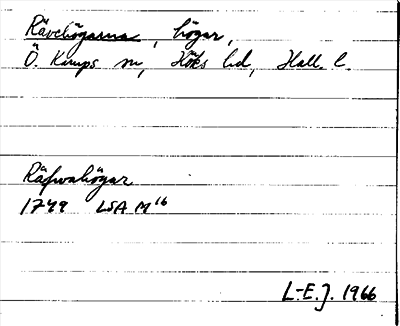 Rävehögarna, högar,
Ö. Karups sn, Höks hd, Hall. l.
Räfwahögar
1749 LSA M 16
L-E.J. 1966